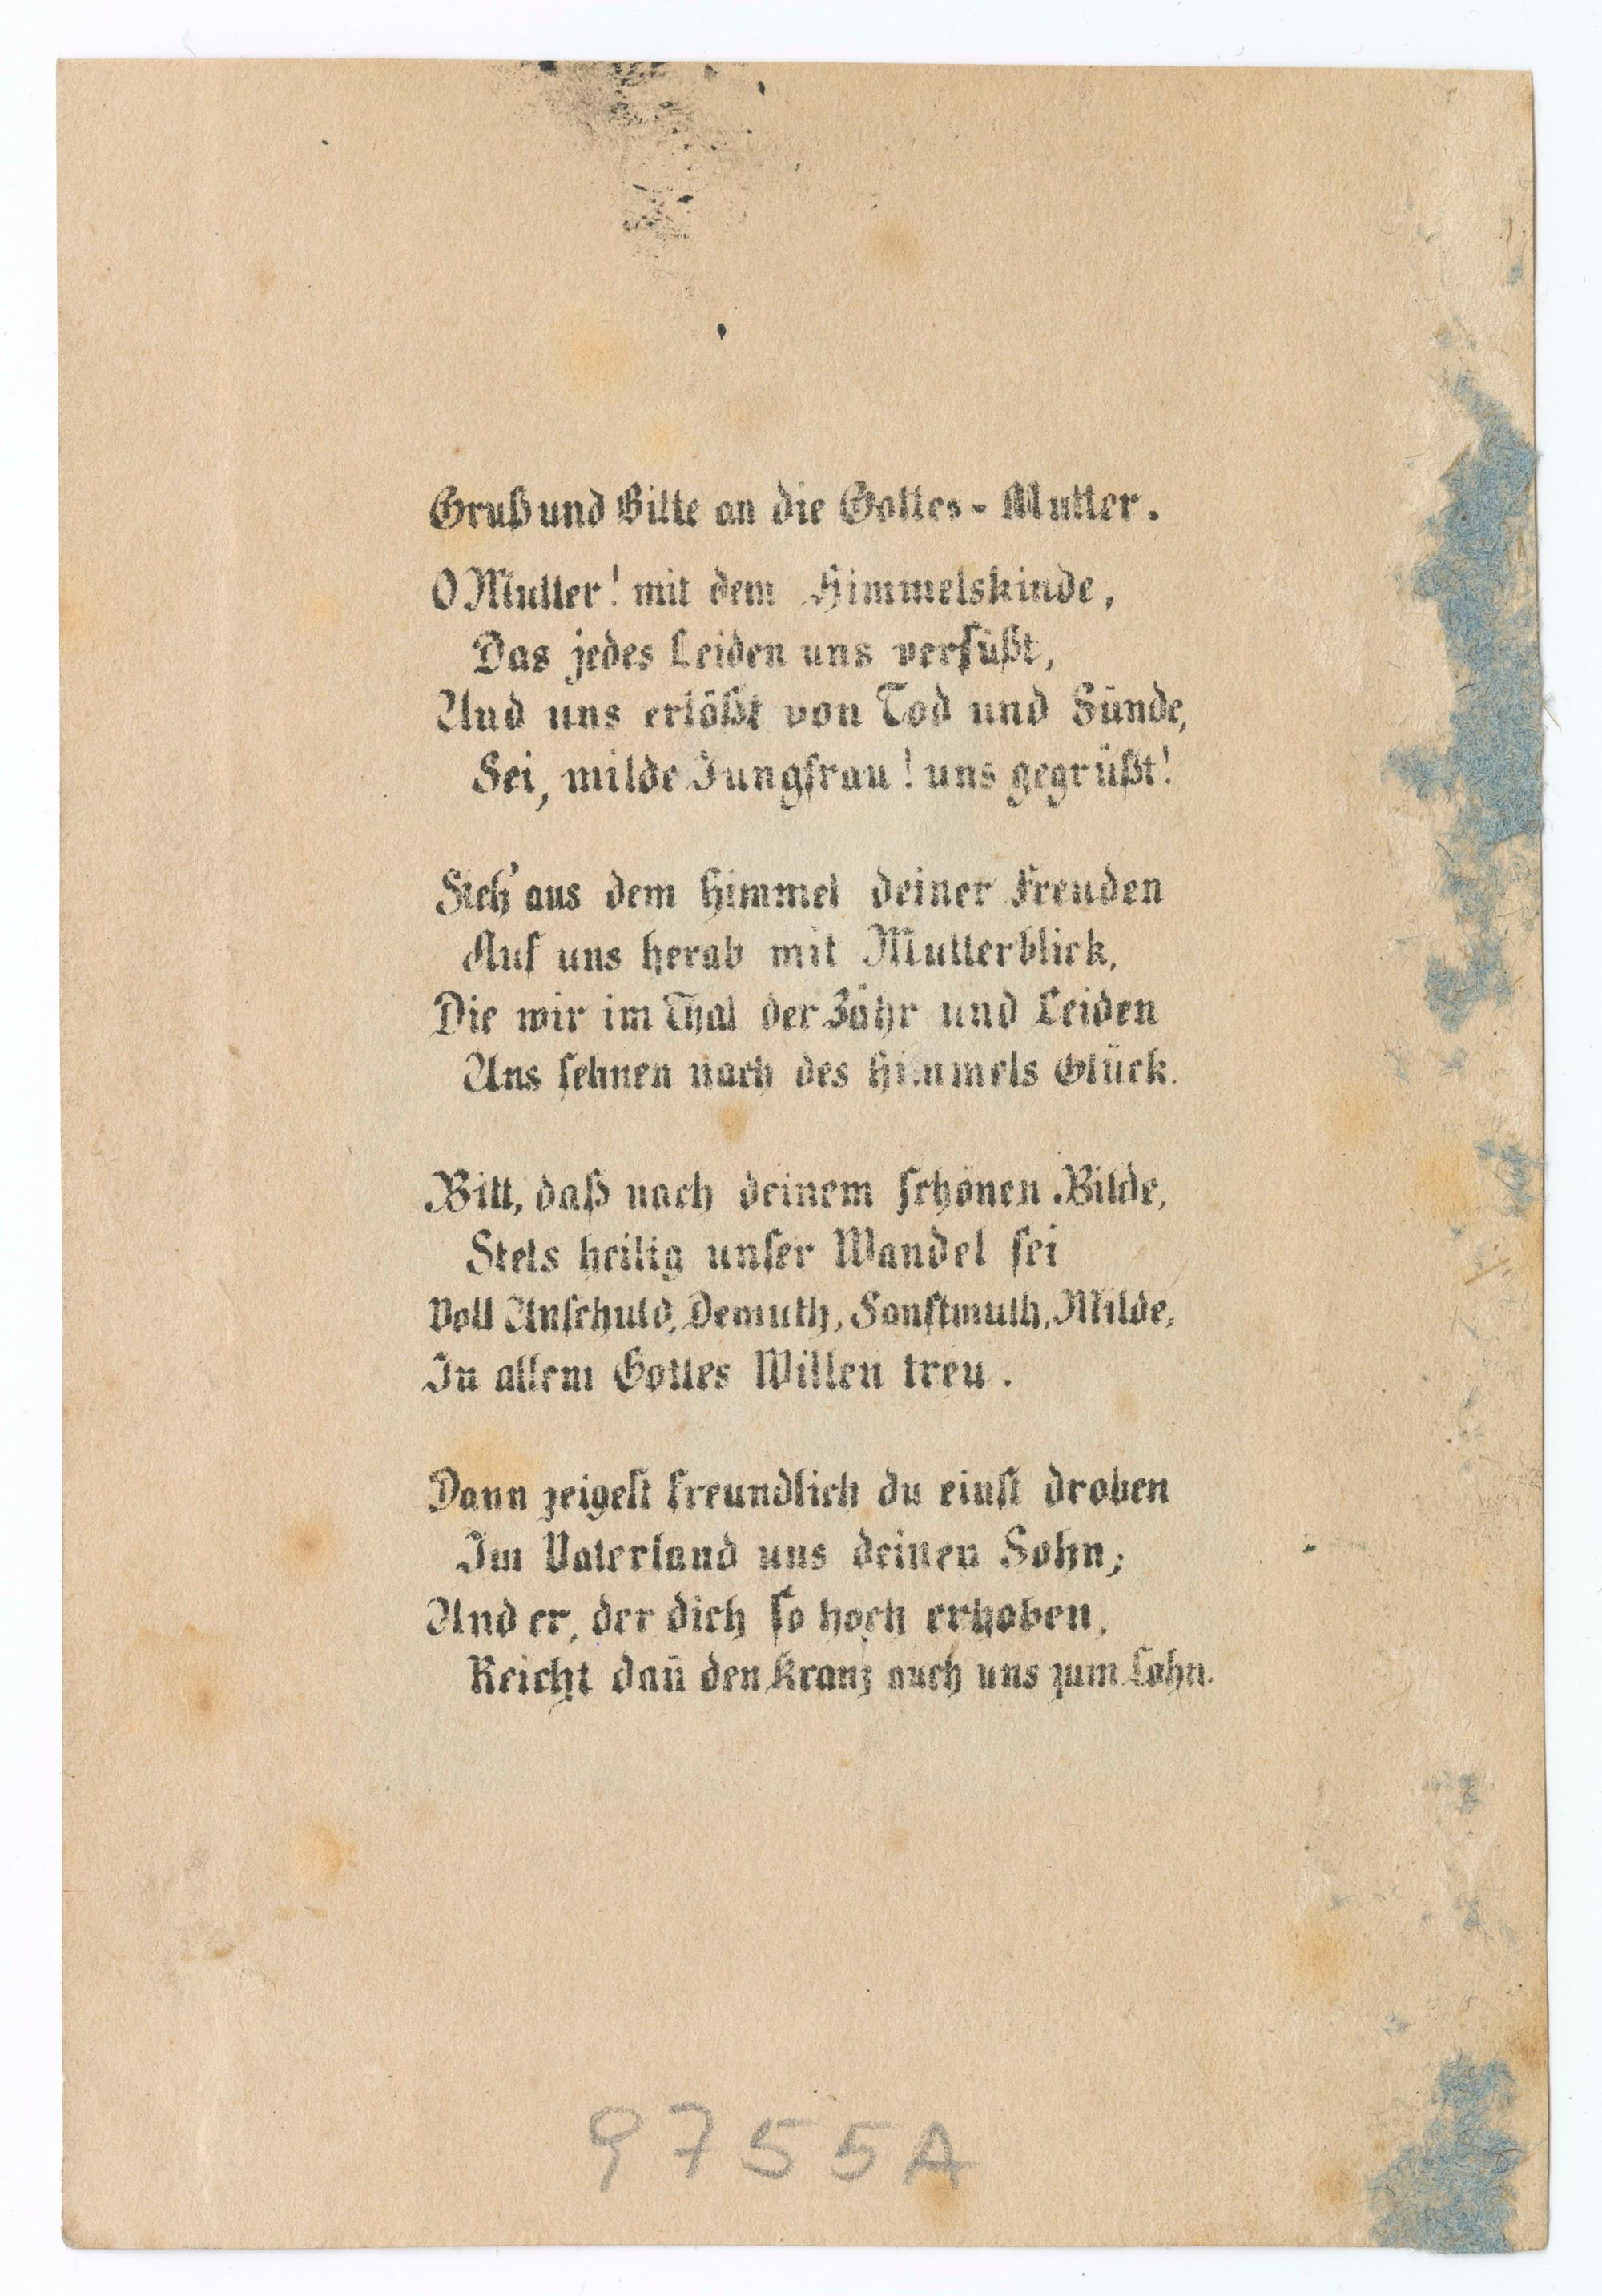 Gruß und Bitte an die Gottes-Mutter.
O Mutter! mit dem Himmelskinde,
Das jedes Leiden uns versüßt,
Und uns erlößt von Tod und Sünde,
Sei, milde Jungfrau! uns gegrüßt!
Sieh' aus dem Himmel deiner Freuden
Auf uns herab mit Mutterblick,
Die wir im Thal der Zähr und Leiden
Uns sehnen nach des Himmels Glück.
Bitt, daß nach deinem schönen Bilde,
Stets heilig unser Wandel sei
Voll Unschuld, Demuth, Sanftmuth, Milde,
In allem Gottes Willen treu.
Dann zeigest freundlich du einst droben
Im Vaterland uns deinen Sohn;
Und er, der dich so hoch erhoben,
Reicht dan̄ den Kranz auch uns zum Lohn.
9755A